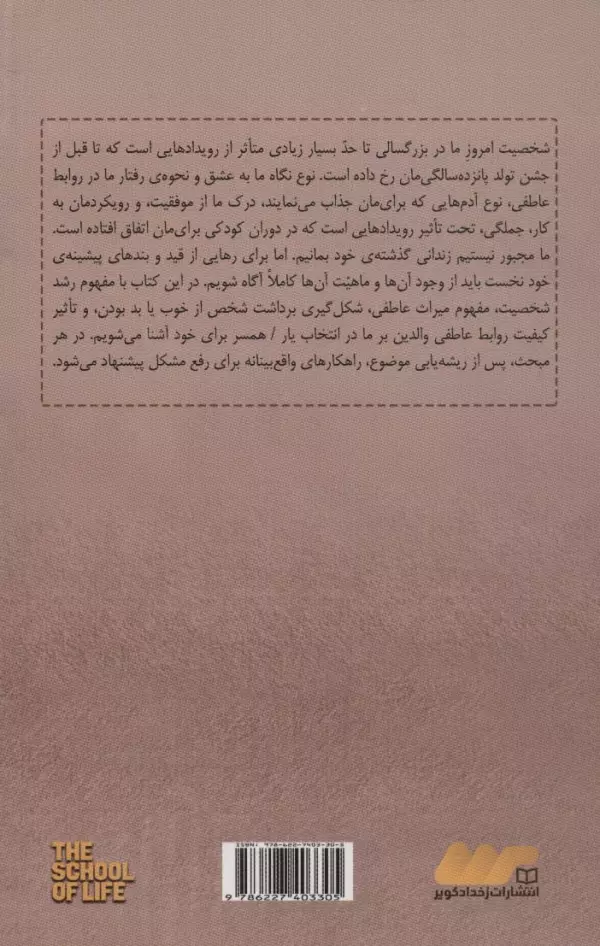 شخصیت امروز ما در بزرگسالی تا حدّ بسیار زیادی متأثر از رویدادهایی است که تا قبل از
جشن تولد پانزده‌سالگی‌مان رخ داده است. نوع نگاه ما به عشق و نحوه‌ی رفتار ما در روابط
عاطفی، نوع آدم‌هایی که برای‌مان جذاب می‌نمایند، درک ما از موفقیت، و رویکردمان به
کار، جملگی، تحت تأثیر رویدادهایی است که در دوران کودکی برای‌مان اتفاق افتاده است.
ما مجبور نیستیم زندانی گذشته‌ی خود بمانیم. اما برای رهایی از قید و بندهای پیشینه‌ی
خود نخست باید از وجود آن‌ها و ماهیّت آن‌ها کاملاً آگاه شویم. در این کتاب با مفهوم رشد
شخصیت، مفهوم میراث عاطفی، شکل‌گیری برداشت شخص از خوب یا بد بودن، و تأثیر
کیفیت روابط عاطفی والدین بر ما در انتخاب یار / همسر برای خود آشنا می‌شویم. در هر
مبحث، پس از ریشه‌یابی موضوع، راهکارهای واقع‌بینانه برای رفع مشکل پیشنهاد می‌شود.
THE
SCHOOL
OF LIFE
ISBN: 978-622-7403-30-5
9 786227 403305
انتشارات رخداد کویر